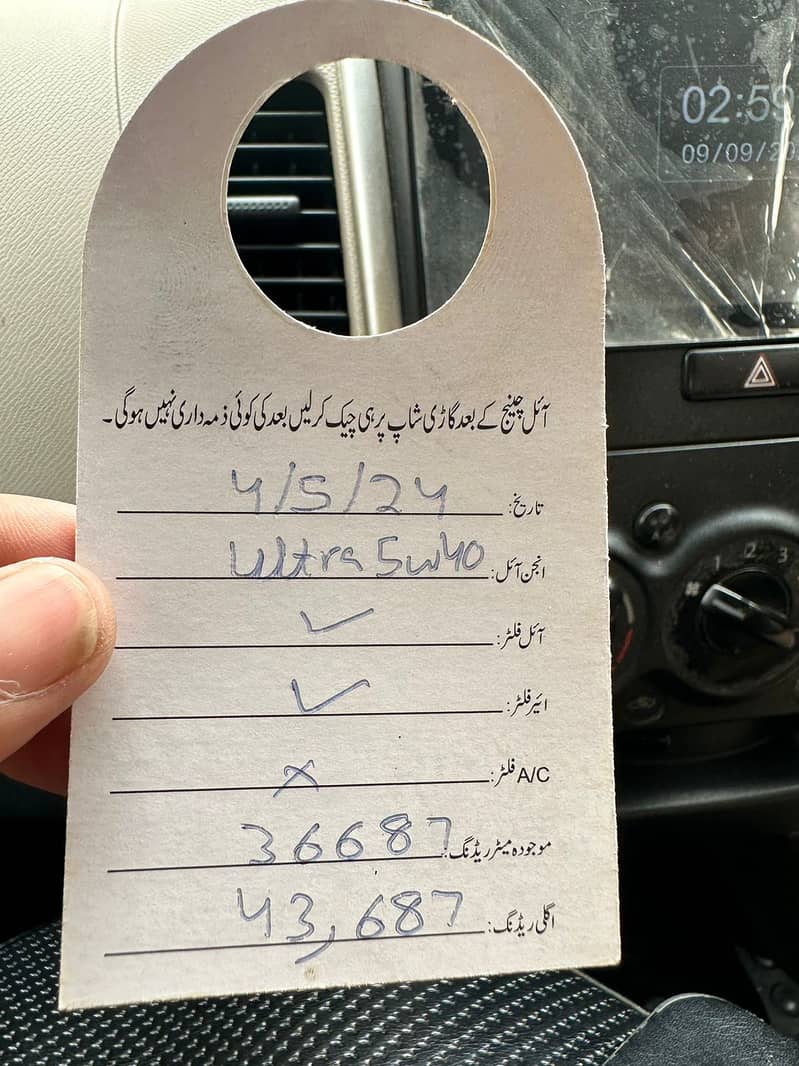 02:59
09/09/20
آئل چینج کے بعد گاڑی شاپ پر ہی چیک کرلیں بعد کی کوئی ذمہ داری نہیں ہوگی۔
تاریخ: 4/5/24
انجن آئل: Ultra 5w40
آئل فلٹر: ✓
ائیر فلٹر: ✓
A/C فلٹر: ×
موجودہ میٹر ریڈنگ: 36687
اگلی ریڈنگ: 43,687
1 2 3